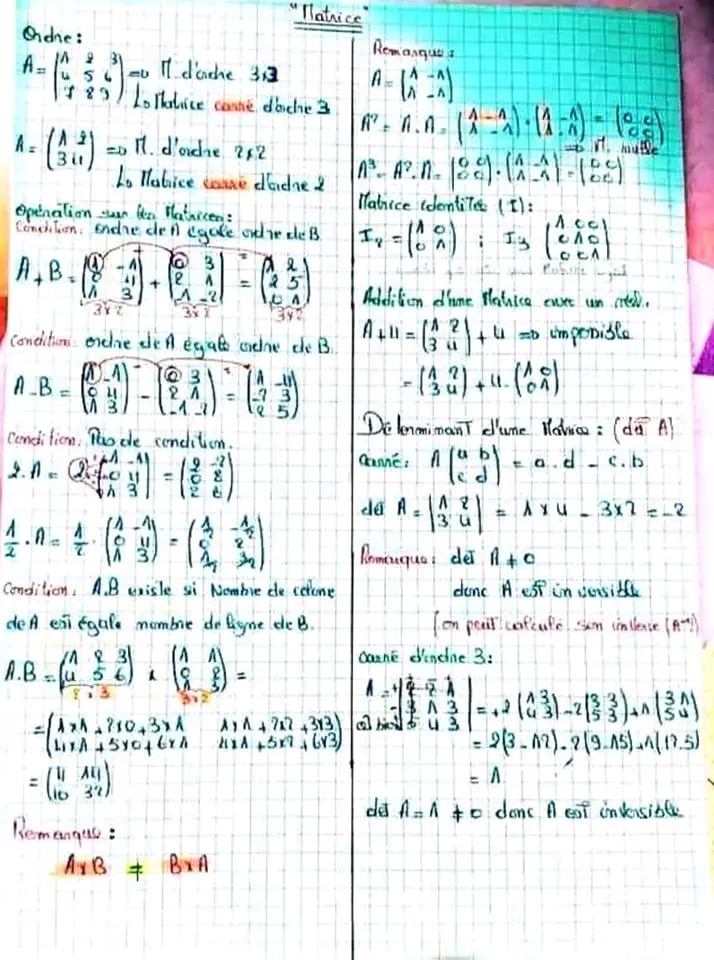 "Matrice"
Ordre :
A = (1 2 3 / 4 5 6 / 7 8 9) => M. d'ordre 3x3
La Matrice carré d'ordre 3
A = (1 2 / 3 4) => M. d'ordre 2x2
La Matrice carré d'ordre 2
Opération sur les Matrices :
Condition. ordre de A égale ordre de B
A + B = (1 -1 / 4 / 1 3) + (0 3 / 2 1 / -1 -2) = (1 2 / 2 5 / 0 1)
3x2 3x2 3x2
Condition. ordre de A égale ordre de B.
A - B = (1 -1 / 0 4 / 1 3) - (0 3 / 2 1 / -1 -2) = (1 -4 / -2 3 / 2 5)
Condition. Pas de condition.
2. A = 2 (1 -1 / 0 4 / 1 3) = (2 -2 / 0 8 / 2 6)
1/2 . A = 1/2 . (1 -1 / 0 4 / 1 3) = (1/2 -1/2 / 0 2 / 1/2 3/2)
Condition. A.B existe si Nombre de colone
de A est égale nombre de ligne de B.
A.B = (1 2 3 / 4 5 6) x (1 1 / 0 2 / 1 3) =
2x3 3x2
= (1x1 + 2x0 + 3x1 1x1 + 2x2 + 3x3 / 4x1 + 5x0 + 6x1 4x1 + 5x2 + 6x3)
= (4 14 / 10 32)
Remarque :
AxB ≠ BxA
Remarque :
A = (1 -1 / 1 -1)
A² = A . A = (1 -1 / 1 -1) . (1 -1 / 1 -1) = (0 0 / 0 0)
=> M. nulle
A³ = A². A = (0 0 / 0 0) . (1 -1 / 1 -1) = (0 0 / 0 0)
Matrice identités (I) :
I₂ = (1 0 / 0 1) ; I₃ (1 0 0 / 0 1 0 / 0 0 1)
Addition d'une Matrice avec un
A + 4 = (1 2 / 3 4) + 4 => impossible
= (1 2 / 3 4) + 4. (1 0 / 0 1)
Determinant d'une Matrice : (det A)
carré : A (a b / c d) = a.d - c.b
det A = |1 2 / 3 4| = 1 x 4 - 3x2 = -2
Remarque : det A ≠ 0
donc A est inversible
(on peut calculé son inverse (A⁻¹)
carré d'ordre 3 :
A = |2 2 1 / 3 1 3 / 5 4 3| = +2 (1 3 / 4 3) - 2 (3 3 / 5 3) + 1 (3 1 / 5 4)
= 2(3 - 12) - 2(9 - 15) + 1(12 - 5)
= 1
det A = 1 ≠ 0 donc A est inversible